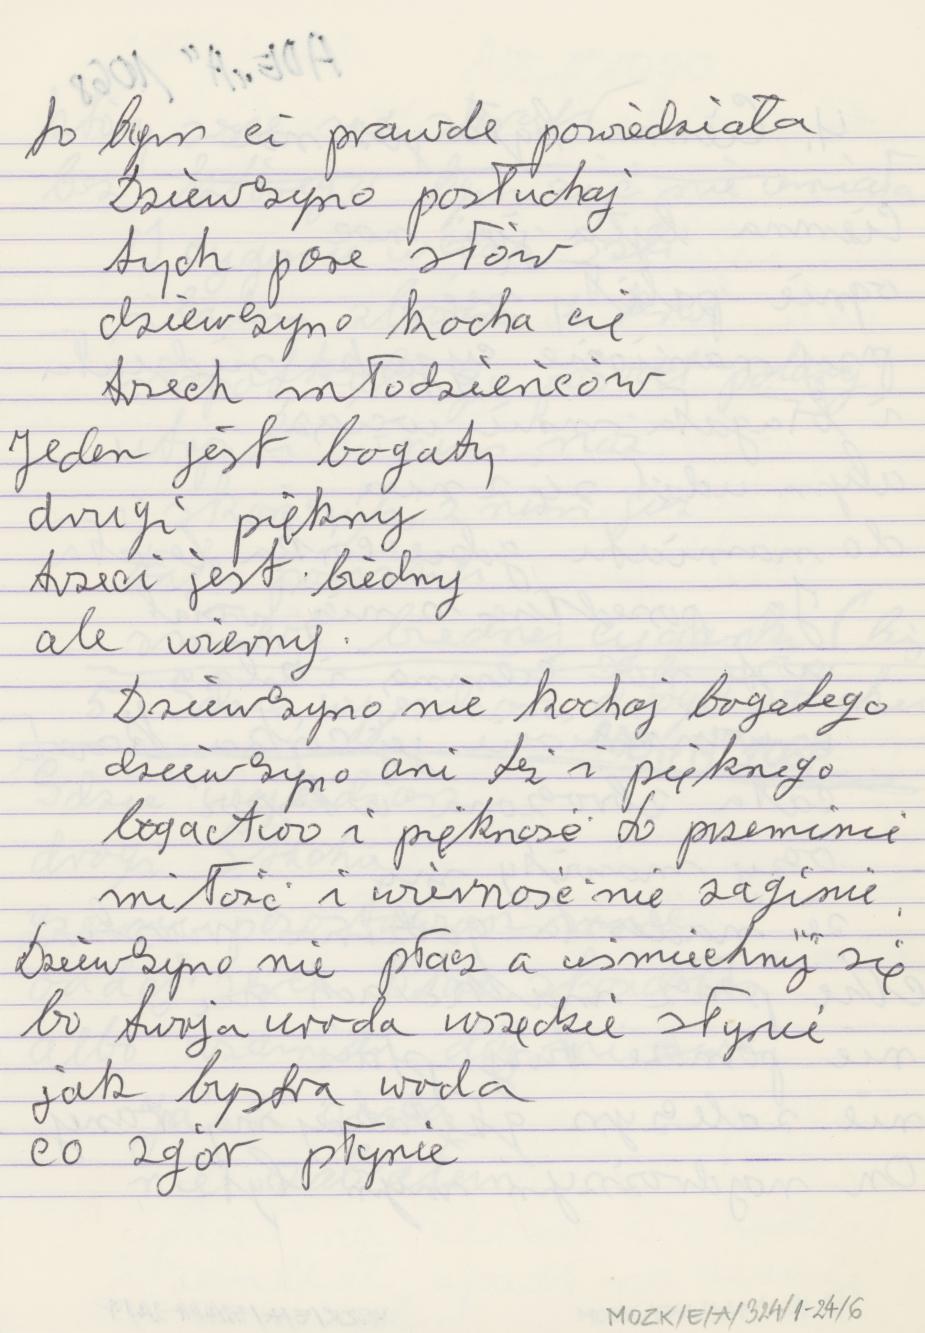 to bym ci prawde powiedziała
Dziewczyno posłuchaj
tych pare słów
dziewczyno kocha cię
trzech młodzieńców
Jeden jest bogaty
drugi piękny
trzeci jest biedny
ale wierny.
Dziewczyno nie kochaj bogatego
dziewczyno ani też i pięknego
bogactwo i piękność to przeminie
miłość i wierność nie zaginie
Dziewczyno nie płacz a uśmiechnij się
bo twoja uroda wszędzie słynie
jak bystra woda
co zgór płynie
MOZK/E/A/324/1-24/6